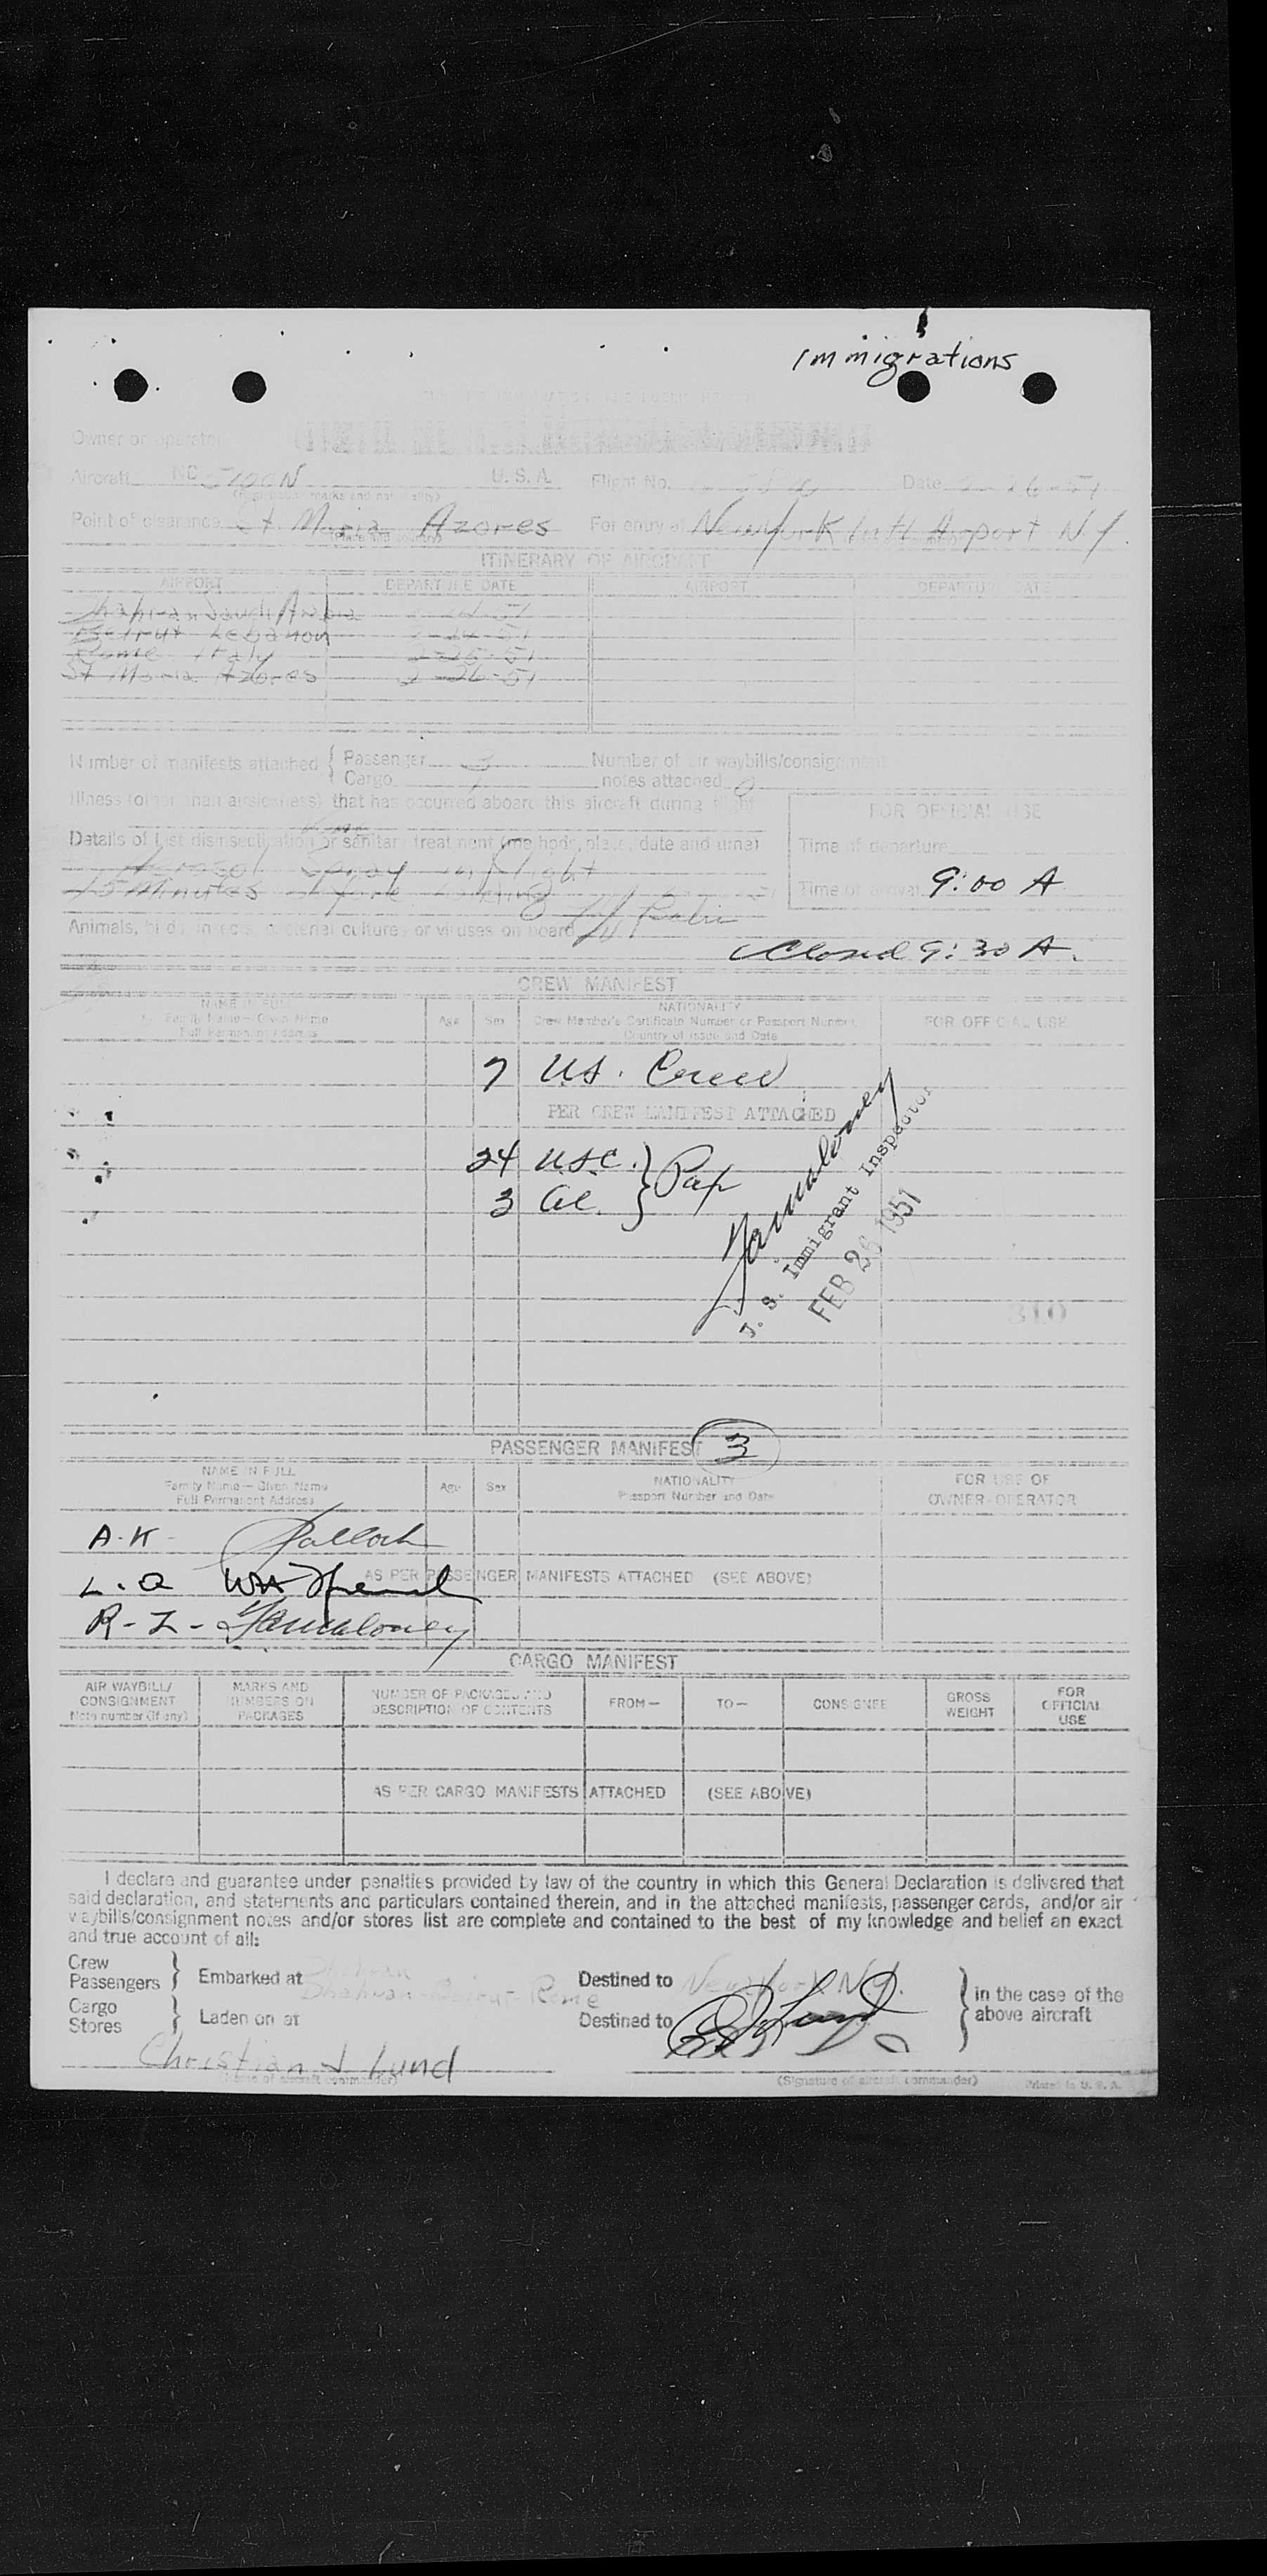 Immigrations
Owner or operator
Aircraft NC U.S.A. Flight No. Date 2-26-51
Point of clearance St. Maria Azores For entry at New York Int'l Airport N.Y.
ITINERARY OF AIRCRAFT
AIRPORT DEPARTURE DATE AIRPORT DEPARTURE DATE
Dhahran Saudi Arabia
Beirut Lebanon
Rome Italy 2-25-51
St Maria Azores 2-26-51
Number of manifests attached { Passenger 3 Number of air waybills/consignment
Cargo 1 notes attached 0
Illness (other than airsickness) that has occurred aboard this aircraft during flight
FOR OFFICIAL USE
Details of last disinsectization or sanitary treatment (methods, place, date and time) Time of departure
Aerosol Spray in flight
15 Minutes before landing Time of arrival 9:00 A
Animals, birds, insects, bacterial cultures or viruses on board
Closed 9:30 A.
CREW MANIFEST
NAME IN FULL NATIONALITY
Family Name—Given Name Age Sex Crew Member's Certificate Number or Passport Number, FOR OFFICIAL USE
Full Permanent Address Country of Issue and Date
7 U.S. Crew
PER CREW MANIFEST ATTACHED
24 U.S.C. } Pax
3 Al.
U. S. Immigrant Inspector
FEB 26 1951
310
PASSENGER MANIFEST 3
NAME IN FULL NATIONALITY FOR USE OF
Family Name—Given Name Age Sex Passport Number and Date OWNER-OPERATOR
Full Permanent Address
A.K-
AS PER PASSENGER MANIFESTS ATTACHED (SEE ABOVE)
L.Q
R-Z-
CARGO MANIFEST
AIR WAYBILL/ MARKS AND NUMBER OF PACKAGES AND FROM— TO— CONSIGNEE GROSS FOR
CONSIGNMENT NUMBERS ON DESCRIPTION OF CONTENTS WEIGHT OFFICIAL
Note number (If any) PACKAGES USE
AS PER CARGO MANIFESTS ATTACHED (SEE ABOVE)
I declare and guarantee under penalties provided by law of the country in which this General Declaration is delivered that
said declaration, and statements and particulars contained therein, and in the attached manifests, passenger cards, and/or air
waybills/consignment notes and/or stores list are complete and contained to the best of my knowledge and belief an exact
and true account of all:
Crew
Passengers } Embarked at Dhahran-Beirut-Rome Destined to New York N.Y. } in the case of the
Cargo above aircraft
Stores } Laden on at Destined to
Christian J Lund
(Name of aircraft commander) (Signature of aircraft commander) Printed in U. S. A.